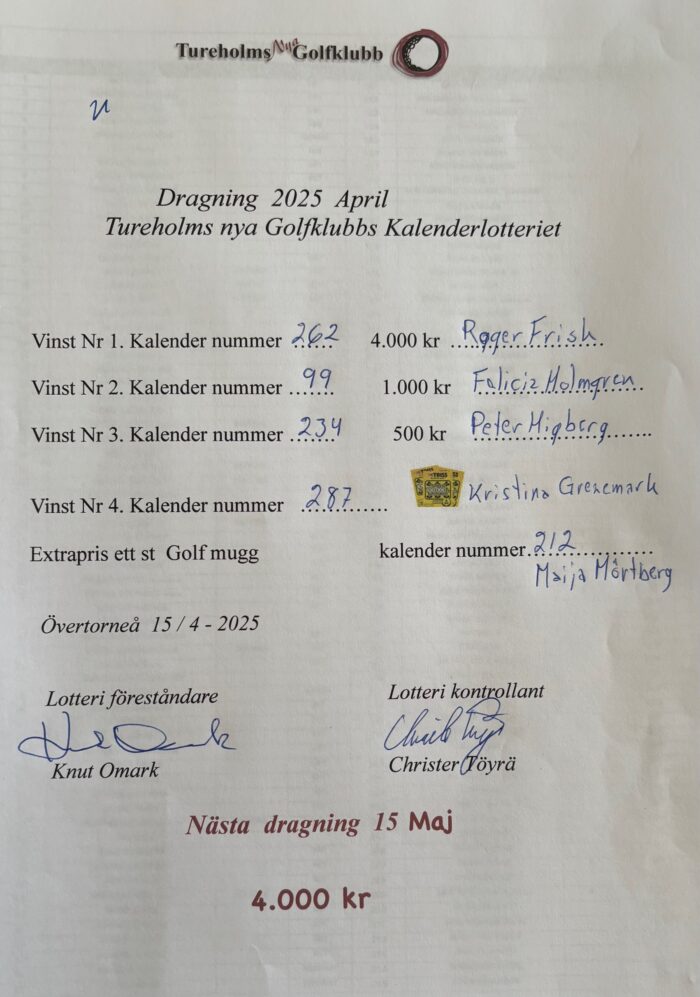 Tureholms Nya Golfklubb
Dragning 2025 April
Tureholms nya Golfklubbs Kalenderlotteriet
Vinst Nr 1. Kalender nummer 262 4.000 kr Roger Frish
Vinst Nr 2. Kalender nummer 99 1.000 kr Felicia Holmgren
Vinst Nr 3. Kalender nummer 234 500 kr Peter Higberg
Vinst Nr 4. Kalender nummer 287 Kristina Grenemark
Extrapris ett st Golf mugg kalender nummer 212
Maija Mörtberg
Övertorneå 15 / 4 - 2025
Lotteri föreståndare Lotteri kontrollant
Knut Omark Christer Töyrä
Nästa dragning 15 Maj
4.000 kr